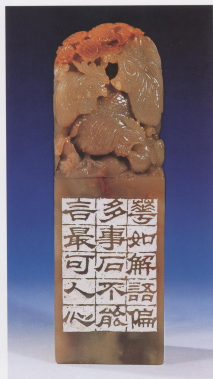 花如解語偏
多事石不能
言最可人心